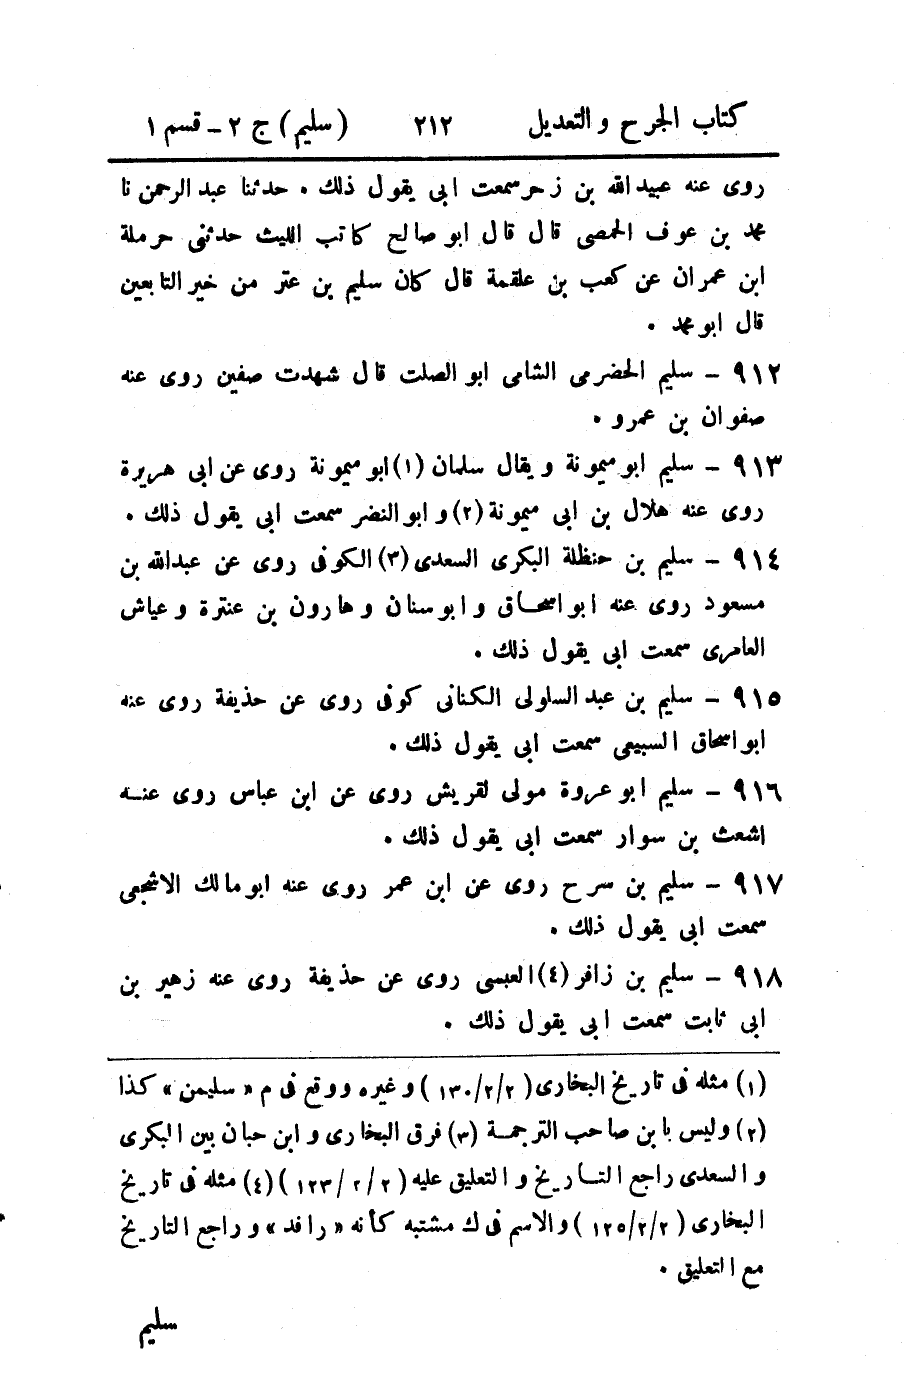 كتاب الجرح والتعديل ٢١٢ (سليم) ج ٢ - قسم ١
روى عنه عبيدالله بن زحر سمعت ابى يقول ذلك . حدثنا عبد الرحمن نا
محمد بن عوف الحمصى قال قال ابو صالح كاتب الليث حدثنى حرملة
ابن عمران عن كعب بن علقمة قال كان سليم بن عتر من خير التابعين
قال ابو محمد .
٩١٢ - سليم الحضرمى الشامى ابو الصلت قال شهدت صفين روى عنه
صفوان بن عمرو .
٩١٣ - سليم ابو ميمونة ويقال سلمان (١) ابو ميمونة روى عن ابى هريرة
روى عنه هلال بن ابى ميمونة (٢) وابو النضر سمعت ابى يقول ذلك .
٩١٤ - سليم بن حنظلة البكرى السعدى (٣) الكوفى روى عن عبدالله بن
مسعود روى عنه ابو اسحاق وابو سنان وهارون بن عنترة وعياش
العامرى سمعت ابى يقول ذلك .
٩١٥ - سليم بن عبد السلولى الكنانى كوفى روى عن حذيفة روى عنه
ابو اسحاق السبيعى سمعت ابى يقول ذلك .
٩١٦ - سليم ابو عروة مولى لقريش روى عن ابن عباس روى عنه
اشعث بن سوار سمعت ابى يقول ذلك .
٩١٧ - سليم بن سرح روى عن ابن عمر روى عنه ابو مالك الاشجعى
سمعت ابى يقول ذلك .
٩١٨ - سليم بن زافر (٤) العبسى روى عن حذيفة روى عنه زهير بن
ابى ثابت سمعت ابى يقول ذلك .
(١) مثله فى تاريخ البخارى (١٣٠/٢/٢) وغيره ووقع فى م «سليمن» كذا
(٢) وليس بابن صاحب الترجمة (٣) فرق البخارى وابن حبان بين البكرى
والسعدى راجع التاريخ والتعليق عليه (١٢٣/٢/٢) (٤) مثله فى تاريخ
البخارى (١٢٥/٢/٢) والاسم فى ك مشتبه كأنه «رافد» وراجع التاريخ
مع التعليق .
سليم